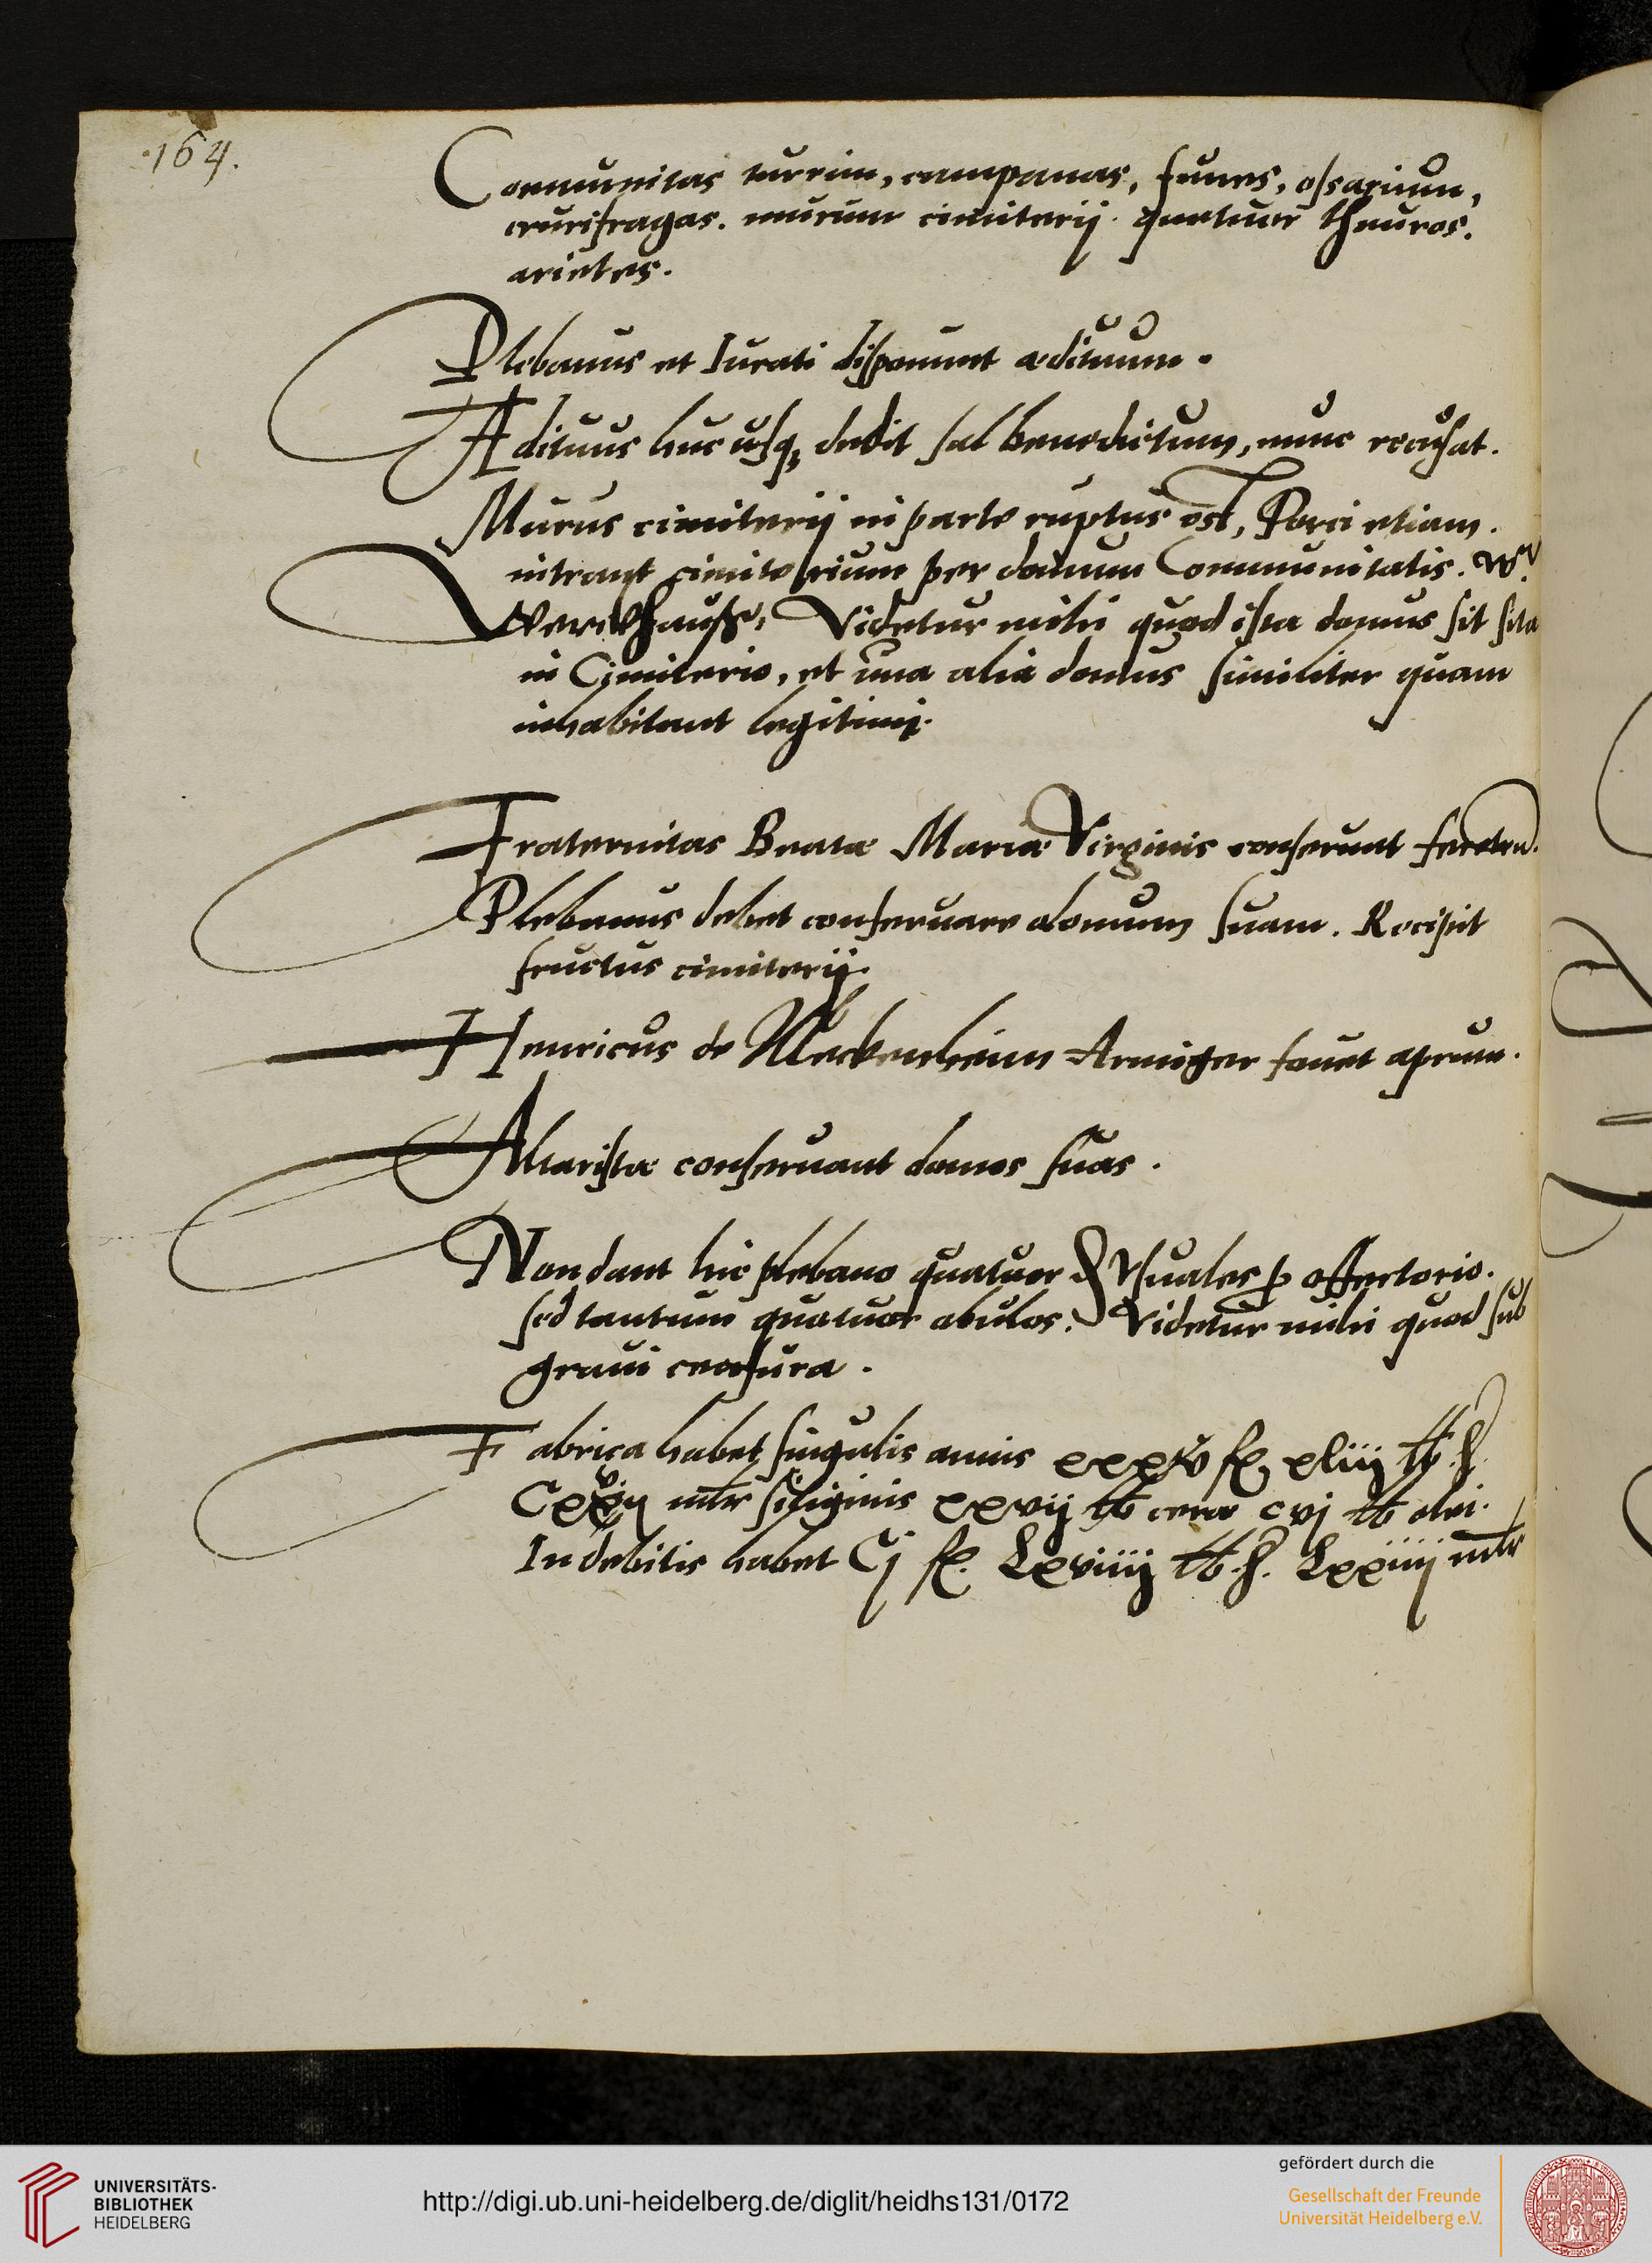 164.
Communitas turrim, campanas, funes, ossarium,
crurifragas. murum cimiterij. quatuor thauros.
arietes.
Plebanus et Iurati disponunt ædituum.
Ædituus huc usq3 dedit sal benedictum, nunc recusat.
Murus cimiterij in parte ruptus est, Porci etiam.
intrant cimiterium per domum Communitatis.
Werckhauß, Videtur mihi quod ista domus sit sita
in Cimiterio, et una alia domus similiter quam
inhabitant legitimi.
Fraternitas Beatæ Mariæ Virginis conserunt
Plebanus debet conseruare domum suam. Recipit
fructus cimiterij.
Henricus de Meckenheim Armiger fouet aprum.
Altaristæ conseruant domos suas.
Non dant hic plebano quatuor ₰ Vsuales p offertorio.
sed tantum quatuor obulos. Videtur mihi quod sub
graui censura.
Fabrica habet singulis annis xxxv fl. xliiij lb. h
mlr siliginis xxvij lb ceræ cvj lb olei.
In debitis habet Cj fl. Lxviiij lb. h. Lxxiiij mlr
UNIVERSITÄTS-
BIBLIOTHEK
HEIDELBERG
http://digi.ub.uni-heidelberg.de/diglit/heidhs131/0172
gefördert durch die
Gesellschaft der Freunde
Universität Heidelberg e.V.